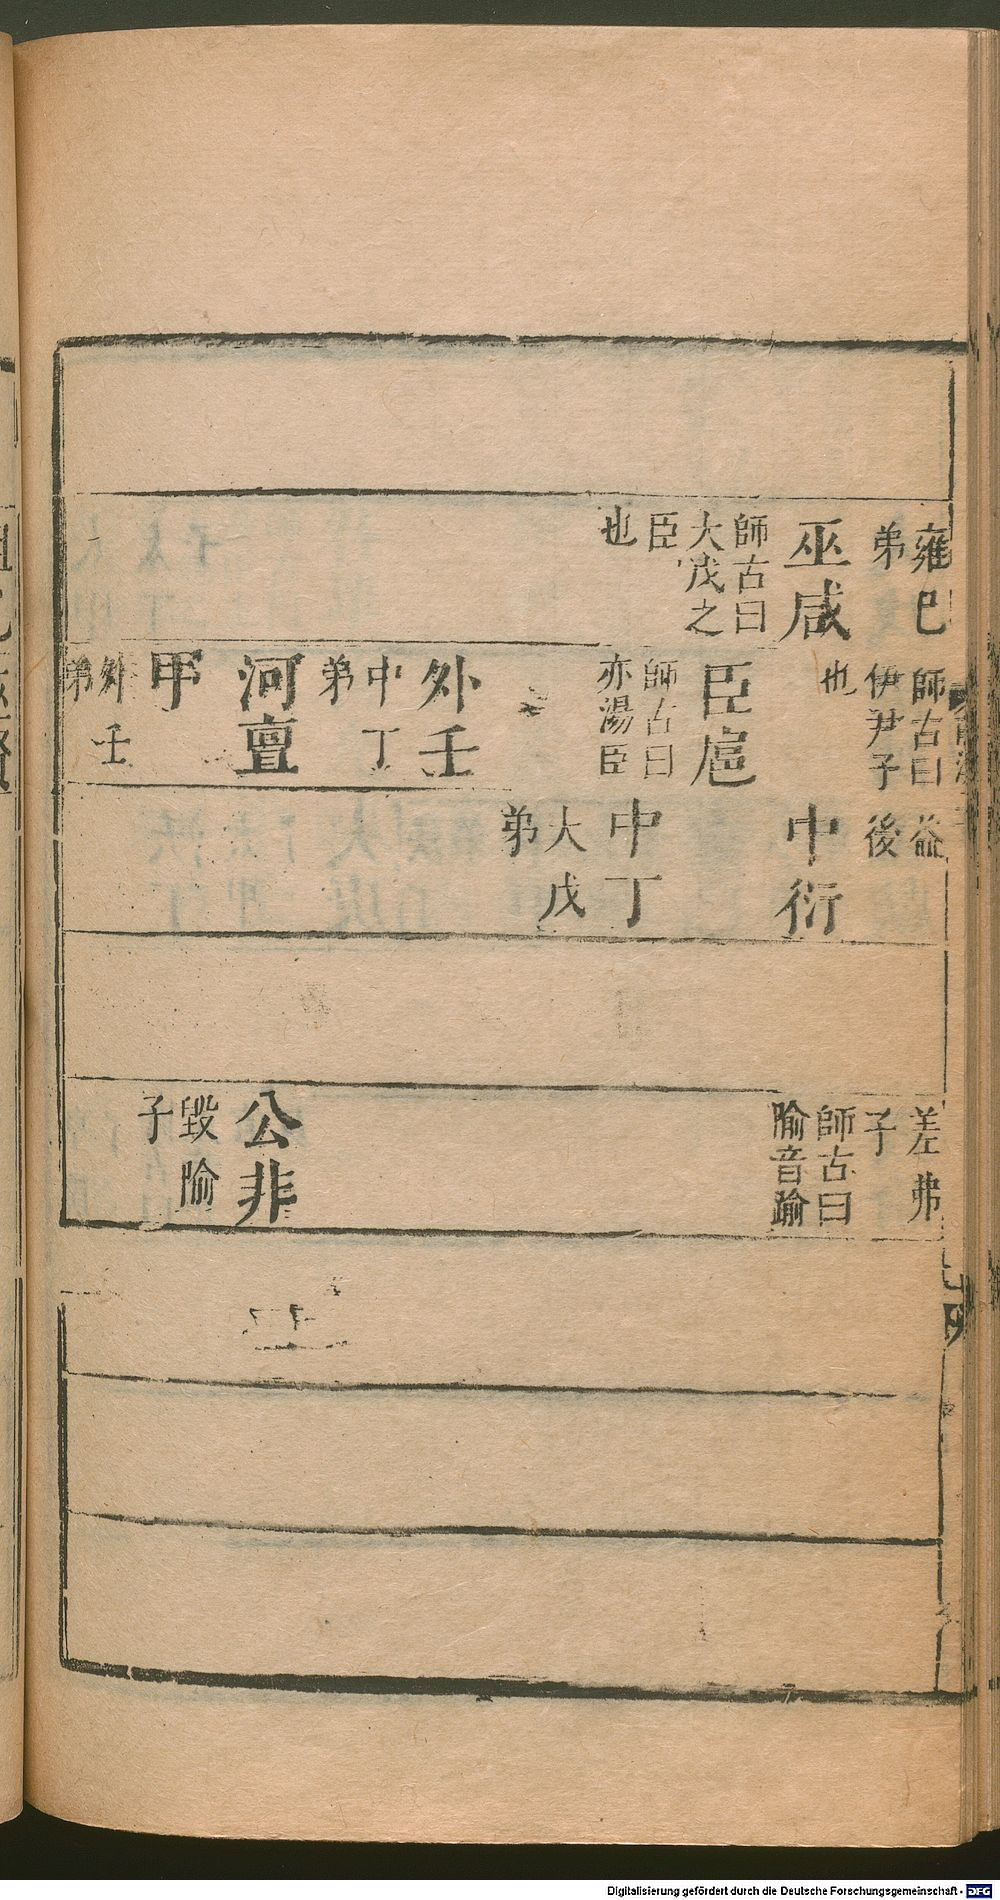 雍巳
弟
巫咸
師古曰
大戊之
臣
也
師古曰
伊尹子
也
臣扈
師古曰
亦湯臣
外壬
中丁
弟
河亶
甲
外壬
弟
益
後
中衍
中丁
大戊
弟
差弗
子
師古曰
隃音踰
公非
毀隃
子
Digitalisierung gefördert durch die Deutsche Forschungsgemeinschaft - DFG